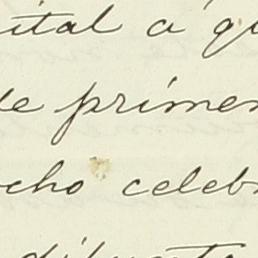 ital a qu
de primer
ocho celeb